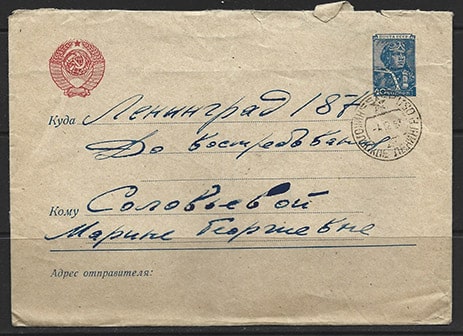 ПОЧТА СССР
40
Куда Ленинград 187
До востребован
Кому Соловьевой
Марине Георгиевне
Адрес отправителя: